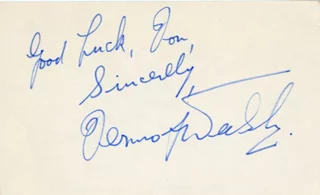 Good Luck, Don,
Sincerely,
Dermot Walsh.